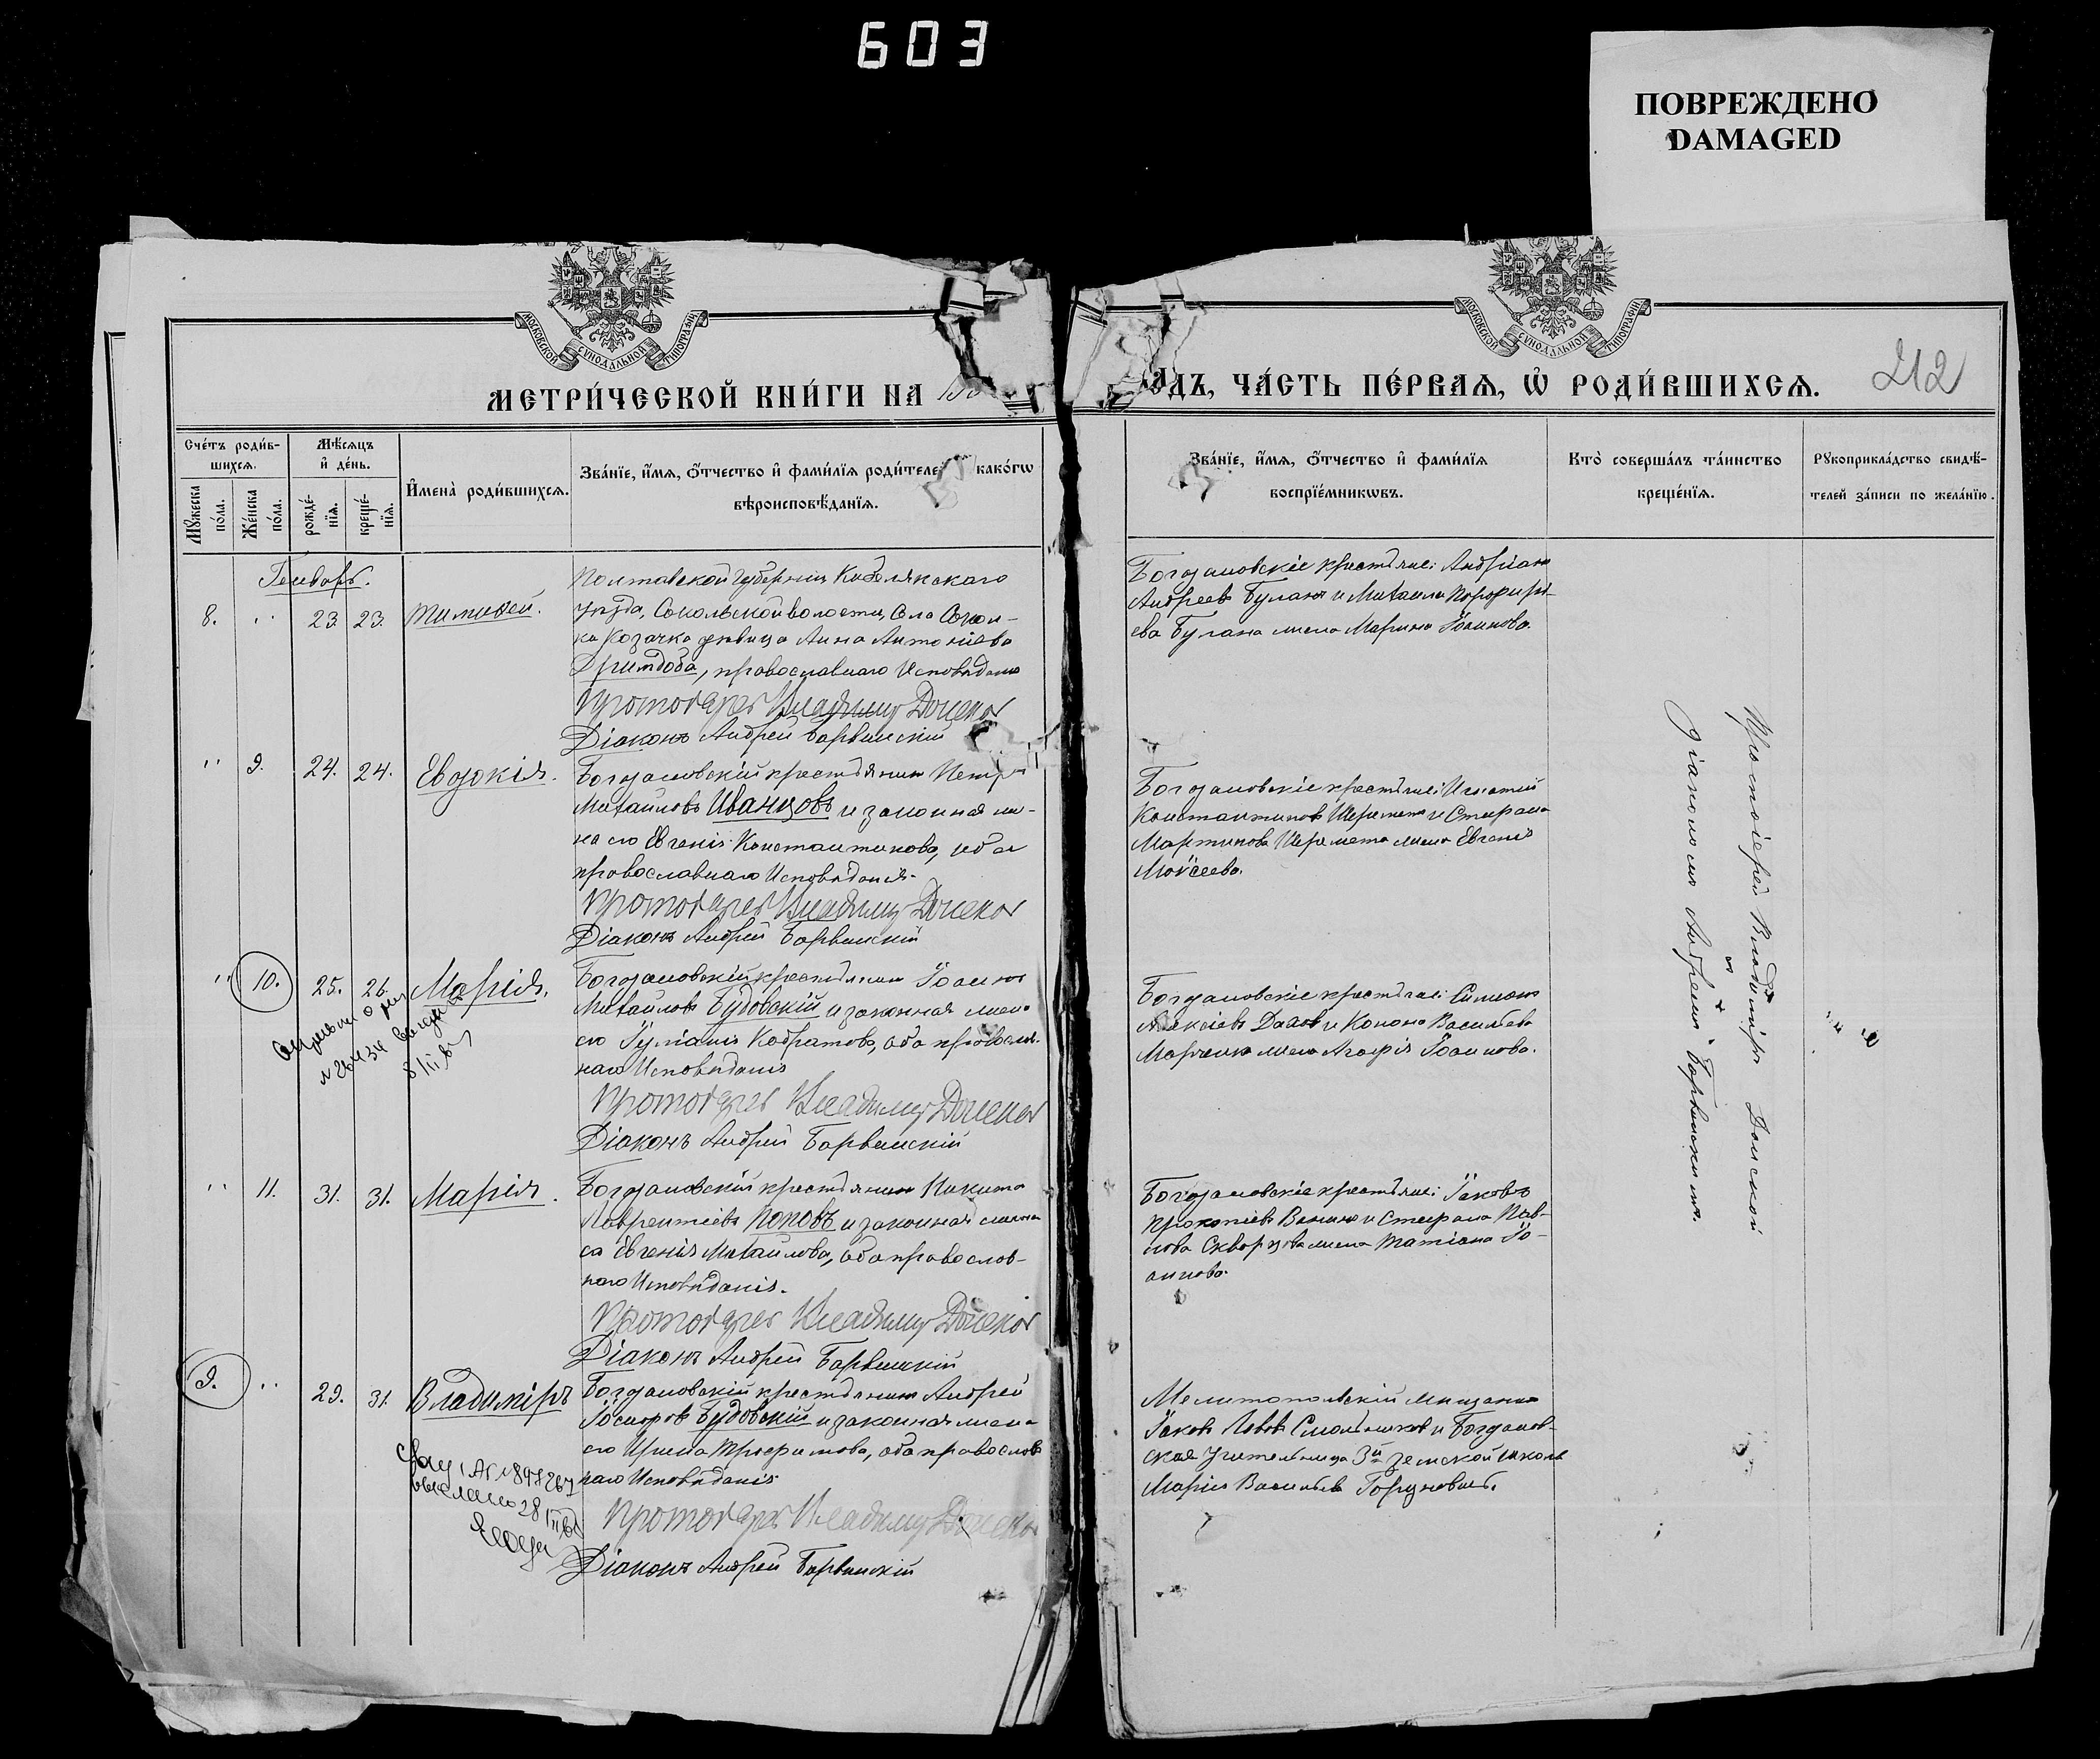 603
ПОВРЕЖДЕНО
DAMAGED
МОСКОВСКОЙ СУНОДАЛЬНОЙ ТИПОГРАФІИ
МЕТРИ́ЧЕСКОЙ КНИ́ГИ НА
МОСКОВСКОЙ СУНОДАЛЬНОЙ ТИПОГРАФІИ
ОДЪ, ЧА́СТЬ ПЕ́РВАЯ, Ѡ҆ РОДИ́ВШИХСЯ.
212
Сче́тъ роди́в-
шихся.
Мꙋ́жеска
по́ла.
Же́нска
по́ла.
Мѣ́сяцъ
и҆ де́нь.
рожде́-
нїя.
креще́-
нїя.
И҆мена̀ роди́вшихся.
Зва́нїе, и҆́мя, ѻ҆́тчество и҆ фами́лїя роди́теле како́гѡ
вѣроисповѣ́данїя.
Зва́нїе, и҆́мя, ѻ҆́тчество и҆ фами́лїя
воспрїе́мникѡвъ.
Кто̀ соверша́лъ та́инство
креще́нїя.
Рꙋкоприкла́дство свидѣ́-
телей за́писи по жела́нїю.
Генварь.
8. " 23 23 Тимофей.
Полтавской губерніи Кобелякскаго
уѣзда, Сокольской волости, Села Сокол-
ка козачка дѣвица Анна Антоніева
, православнаго Исповѣданія
Протоіерей Владиміръ Донской
Діаконъ Андрей Барвинскій
Богдановскіе крестьяне: Андріанъ
Андреевъ Буланъ и Михаила Порфирі-
ева Булана жена Марина Іоаннова.
" 9. 24. 24. Евдокія.
Богдановскій крестьянинъ Петръ
Михайловъ Иванцовъ и законная же-
на его Евгенія Константинова, оба
православнаго Исповѣданія.
Протоіерей Владиміръ Донской
Діаконъ Андрей Барвинскій
Богдановскіе крестьяне: Игнатій
Константиновъ Шереметъ и Стефана
Мартинова Шеремета жена Евгенія
Моѵсеева.
" 10. 25. 26. Марія.
Богдановскій крестьянинъ Іоаннъ
Михайловъ Будовскій и законная жена
его Іуліанія Кодратова, оба православ-
наго Исповѣданія
Протоіерей Владиміръ Донской
Діаконъ Андрей Барвинскій
Богдановскіе крестьяне: Симеонъ
Алексіевъ и Конона Васильева
Марченка жена Агафія Іоаннова.
" 11. 31. 31. Марія.
Богдановскій крестьянинъ Никита
Лаврентіевъ Поповъ и законная жена
его Евгенія Михайлова, оба православ-
наго Исповѣданія.
Протоіерей Владиміръ Донской
Діаконъ Андрей Барвинскій
Богдановскіе крестьяне: Іаковъ
Прокопіевъ и Стефана Пав-
лова Скворцова жена Татіана Іо-
аннова.
9. " 29. 31. Владиміръ
Богдановскій крестьянинъ Андрей
Іосифовъ Будовскій и законная жена
его Ирина Трофимова, оба православ
наго Исповѣданія
Протоіерей Владиміръ Донской
Діаконъ Андрей Барвинскій
Мелитопольскій мѣщанинъ
Іаковъ Львовъ и Богданов-
ская учительница 3й земской школы
Марія Васильева
Протоіерей Владиміръ Донской
съ
діакономъ Андреемъ Барвинскимъ.